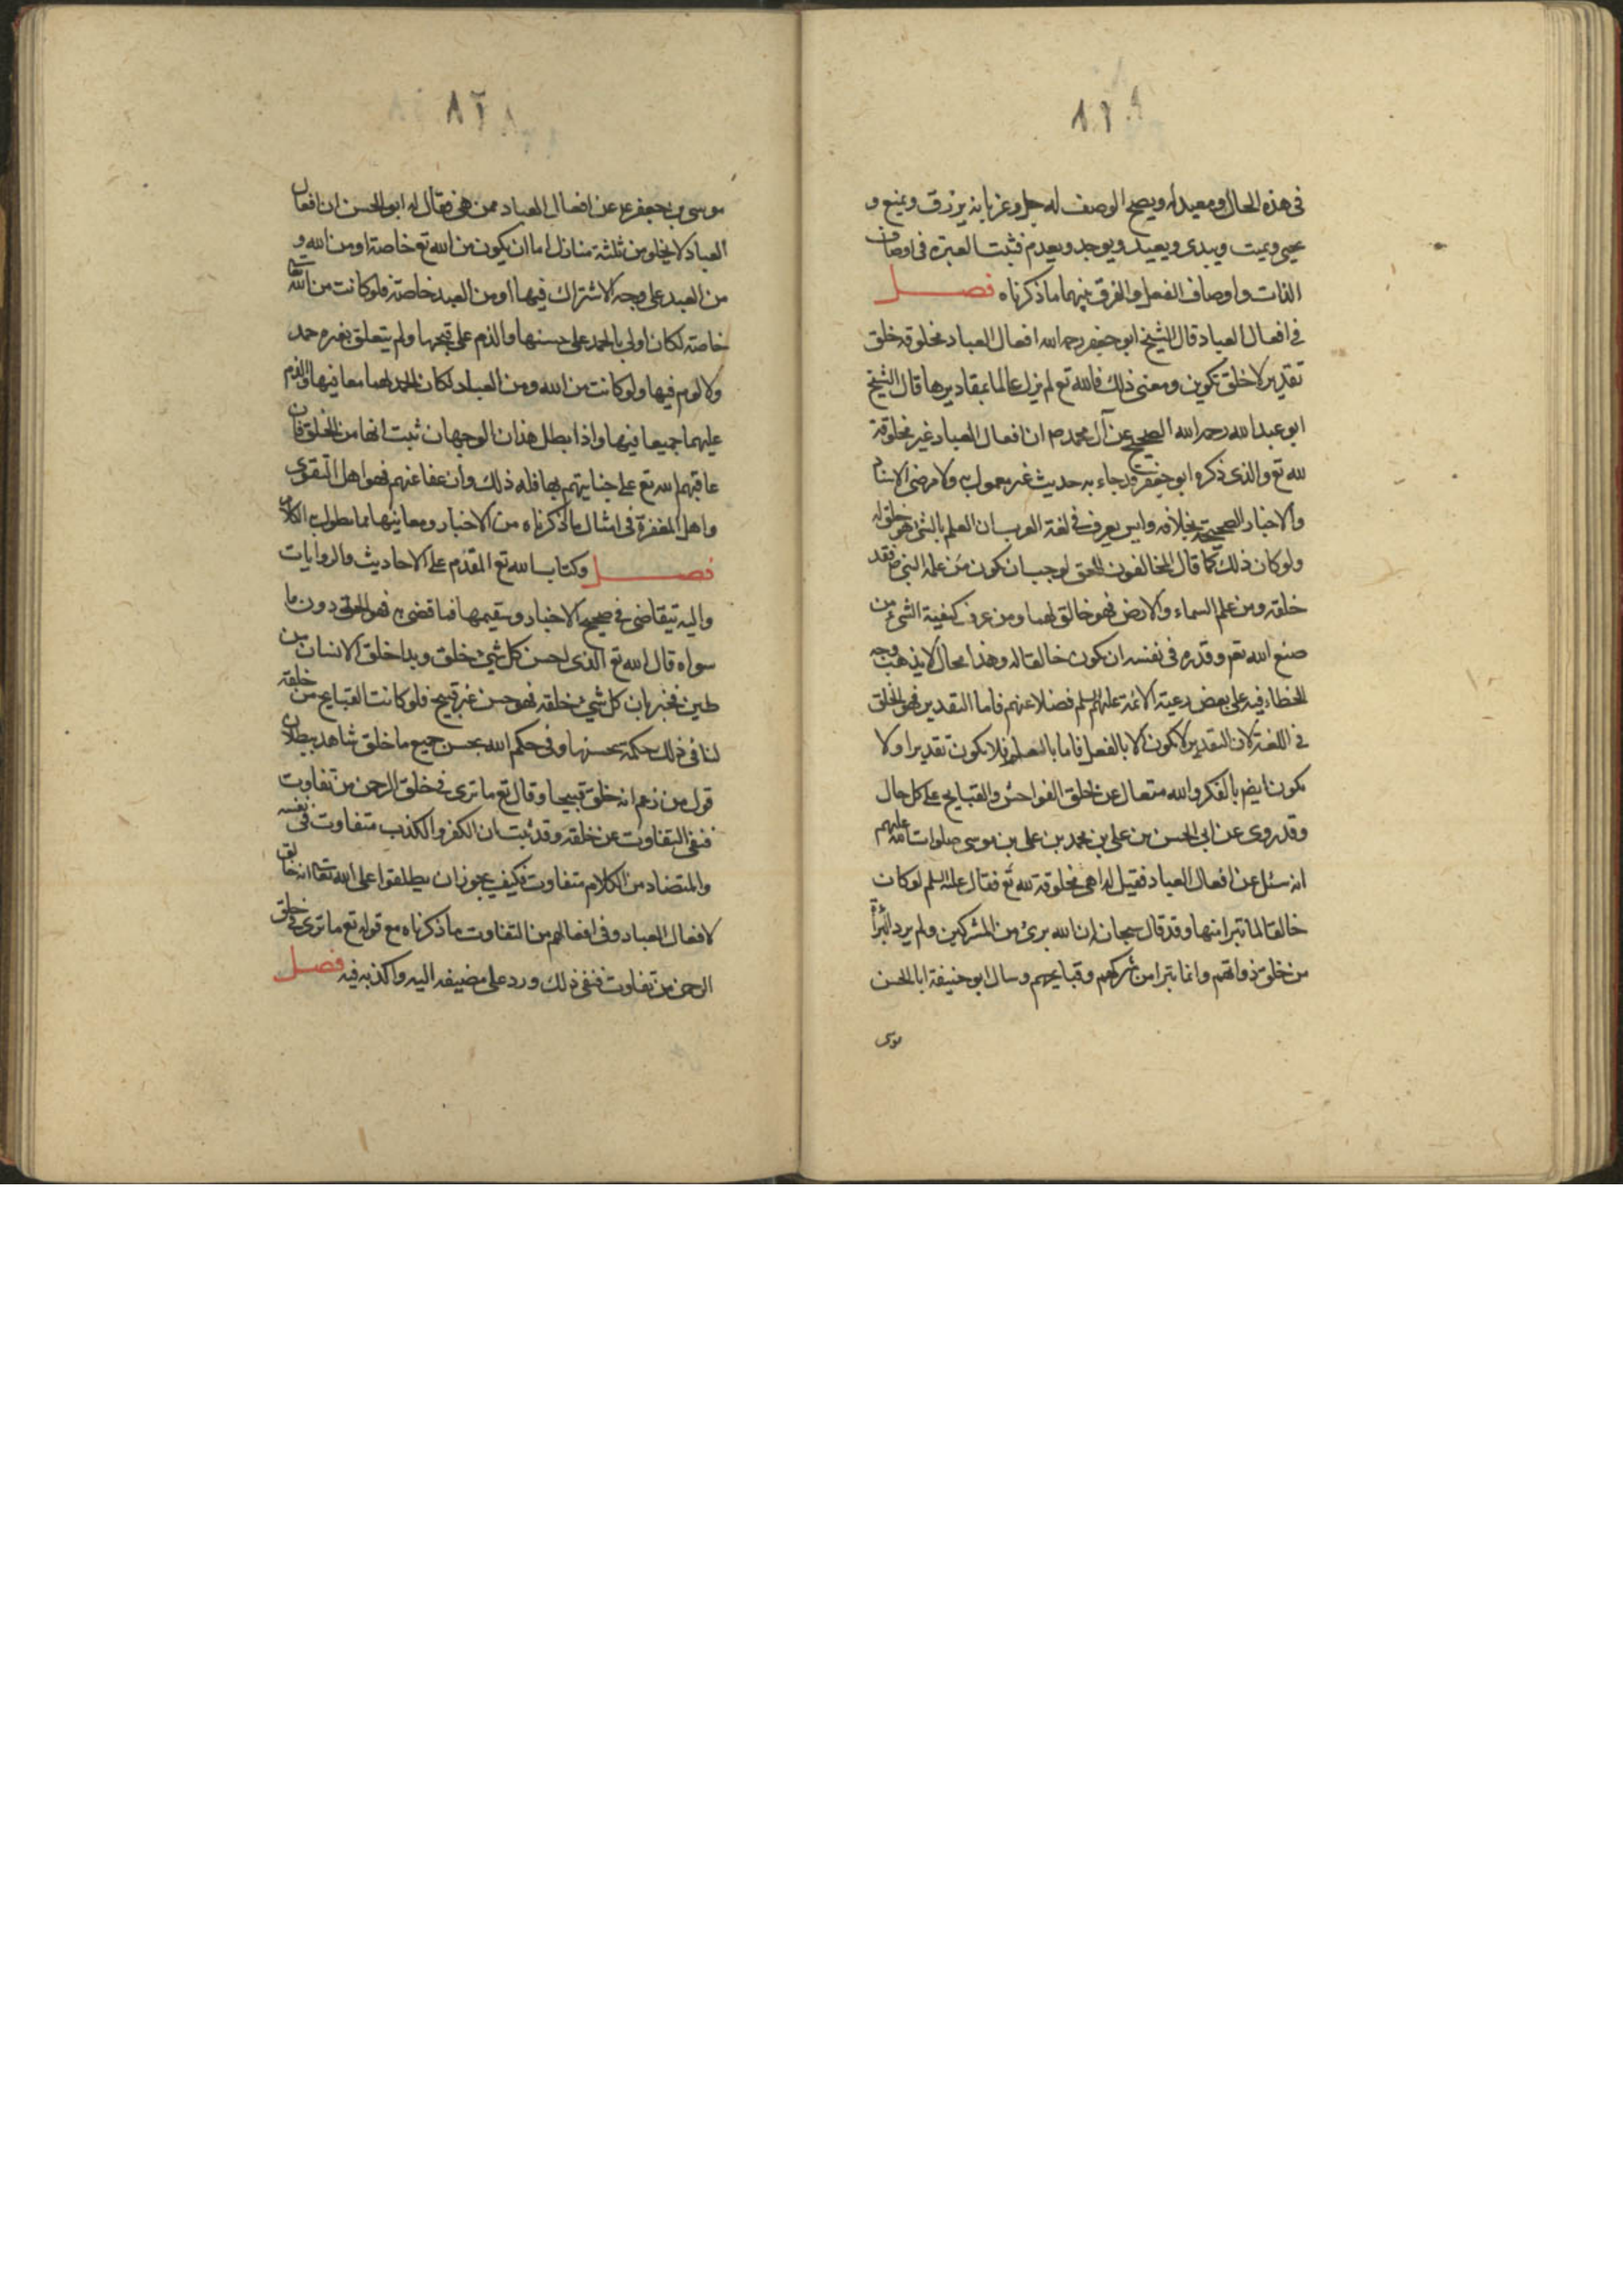 في هذه الحال ومعيد له ويصح الوصف له جل وعز بانه يرزق ويمنع و
يحيى ويميت ويبدى ويعيد ويوجد ويعدم فثبت العبرة في اوصاف
الذات واوصاف الفعل والفرق بينهما ما ذكرناه فصل
في افعال العباد قال الشيخ ابو جعفر رحمه الله افعال العباد مخلوقه خلق
تقدير لا خلق تكوين ومعنى ذلك فالله تع لم يزل عالما بمقاديرها قال الشيخ
ابو عبدالله رحمه الله الصحيح عن آل محمد ص ان افعال العباد غير مخلوقة
لله تع والذى ذكره ابو جعفر قد جاء به حديث غير معمول به ولا مرضى الاسناد
والاخبار الصحيحة بخلافه وليس يعرف في لغة العرب ان العلم بالشئ هو خلق له
ولو كان ذلك كما قال المخالفون للحق لوجب ان يكون من علم النبي ص فقد
خلقه ومن علم السماء والارض فهو خالق لهما ومن عرف كيفية الشئ من
صنع الله تعم وقدره في نفسه ان يكون خالقا له وهذا محال لا يذهب وجه
الخطاء فيه على بعض رعية الائمة عليهم السلم فضلا عنهم فاما التقدير فهو الخلق
في اللغة لان التقدير لا يكون الا بالفعل فاما بالعلم فلا يكون تقديرا ولا
يكون ايضم بالفكر والله متعال عن خلق الفواحش والقبايح على كل حال
وقد روى عن ابي الحسن بن علي بن محمد بن علي بن موسى صلوات الله عليهم
انه سئل عن افعال العباد فقيل له اهى مخلوقة لله تع فقال عليه السلم لو كان
خالقا لها لما تبرا منها وقد قال سبحانه ان الله برئ من المشركين ولم يرد البرأة
من خلق ذواتهم وانما تبرا من شركهم وقبايحهم وسال ابو حنيفة ابا الحسن
موسى
موسى بن جعفر ع عن افعال العباد ممن هي فقال له ابو الحسن ان افعال
العباد لا يخلو من ثلثة منازل اما ان يكون من الله تع خاصة او من الله و
من العبد على وجه الاشتراك فيها او من العبد خاصة فلو كانت من الله تعالى
خاصة لكان اولى بالحمد على حسنها والذم على قبحها ولم يتعلق بغيره حمد
ولا لوم فيها ولو كانت من الله ومن العباد لكان الحمد لهما معا فيها والذم
عليهما جميعا فيها واذا بطل هذان الوجهان ثبت انها من الخلق فان
عاقبهم الله تع على جنايتهم بها فله ذلك وان عفا عنهم فهو اهل التقوى
واهل المغفرة في امثال ما ذكرناه من الاخبار ومعانيها مما يطول به الكلام
فصل وكتاب الله تع المقدم على الاحاديث والروايات
واليه يتقاضى في صحيح الاخبار وسقيمها فما قضى به فهو الحق دون ما
سواه قال الله تع الذى احسن كل شئ خلقه وبدا خلق الانسان من
طين فخبر بان كل شئ خلقه فهو حسن غير قبيح فلو كانت القبايح من خلقه
لنافى ذلك حكمه بحسنها وفي حكم الله بحسن جميع ما خلق شاهد ببطلان
قول من زعم انه خلق قبيحا وقال تع ما ترى في خلق الرحمن من تفاوت
فنفى التفاوت عن خلقه وقد ثبت ان الكفر والكذب متفاوت في نفسه
والمتضاد من الكلام متفاوت فكيف يجوز ان يطلقوا على الله تعالى انه خالق
لافعال العباد وفي افعالهم من التفاوت ما ذكرناه مع قوله تع ما ترى في خلق
الرحمن من تفاوت فنفى ذلك ورد على مضيفه اليه واكذبه فيه فصل